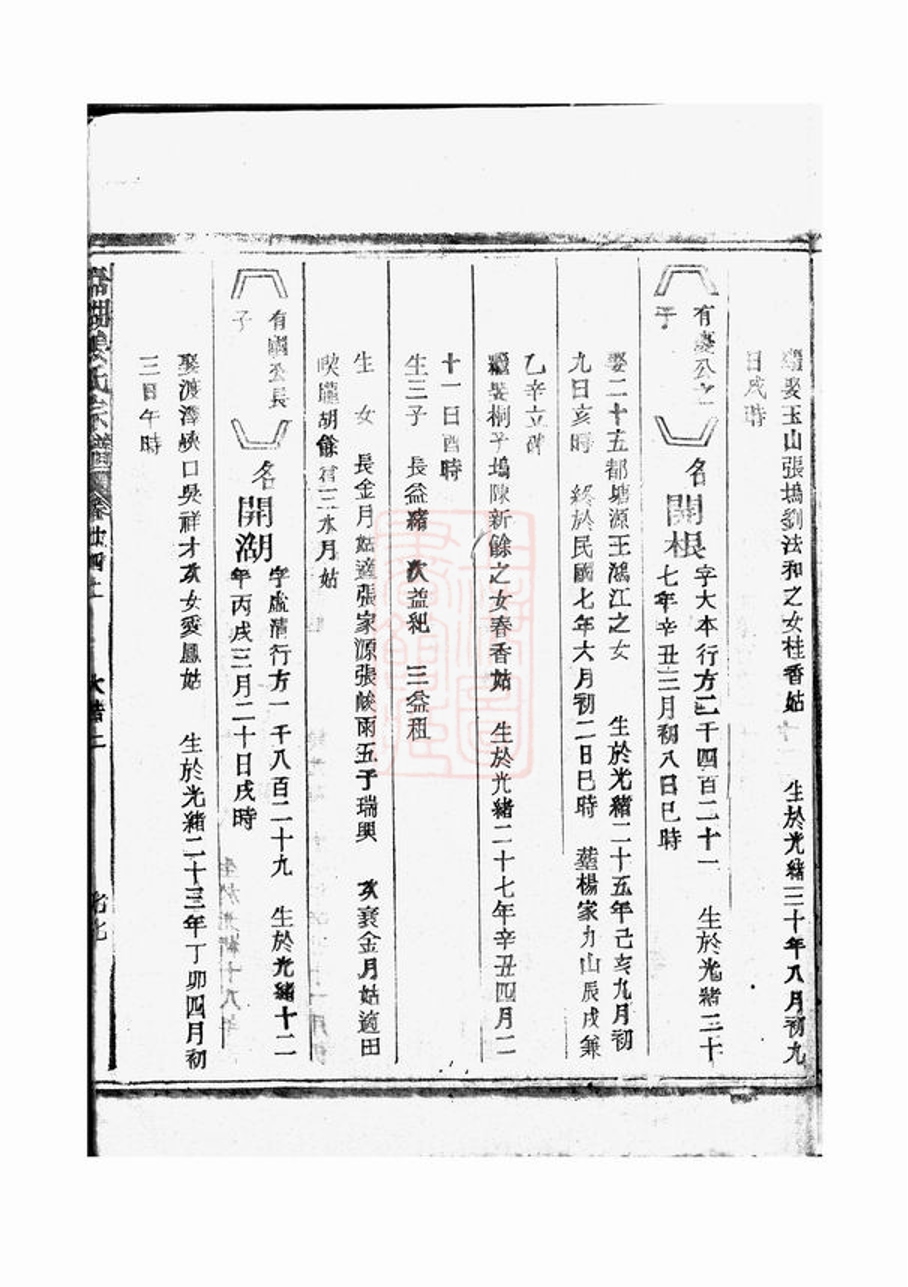 繼娶玉山張塢劉法和之女桂香姑　生於光緒三十年八月初九
日戌時
有慶公之
子
名開根
字大本行方二千四百二十一　生於光緒二十
七年辛丑三月初八日巳時
娶二十五都塘源王鴻江之女　生於光緒二十五年己亥九月初
九日亥時　終於民國七年六月初二日巳時　葬楊家力山辰戌兼
乙辛立碑
繼娶桐子塢陳新餘之女春香姑　生於光緒二十七年辛丑四月二
十一日酉時
生三子　長益緒　次益紀　三益租
生女　長金月姑適張家源張峻雨五子瑞興　次衰金月姑適田
胡餘　三水月姑
有國公長
子
名開湖
字虛清行方一千八百二十九　生於光緒十二
年丙戌三月二十日戌時
娶渡潭峽口吳祥才次女愛鳳姑　生於光緒二十三年丁卯四月初
三日午時
氏宗譜　卷廿四上